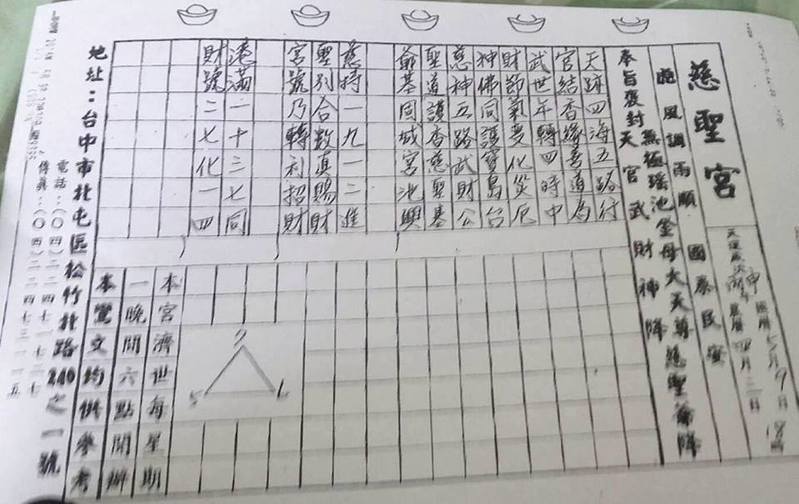 慈聖宮
國泰民安
風調雨順
無極瑤池金母大天尊慈聖爺降
奉旨褒封天官武財神降
天跡四海五路行
官結香緣善道為
武世年轉四時中
財節氣變化災厄
神佛同護寶島台
慈神五路武財公
聖道護香慈聖基
爺基同城宮池興
慈持一九一二進
聖別合數真賜財
宮號乃轉利招財
港滿一十三七同
財號二七化一四
本宮濟世每星期
一晚間六點開辦
本鸞文約供參考
地址：台中市北屯區松竹北路240之一號
電話：(〇四)二二四七一七二七
傳真：(〇四)二二四七三一一五